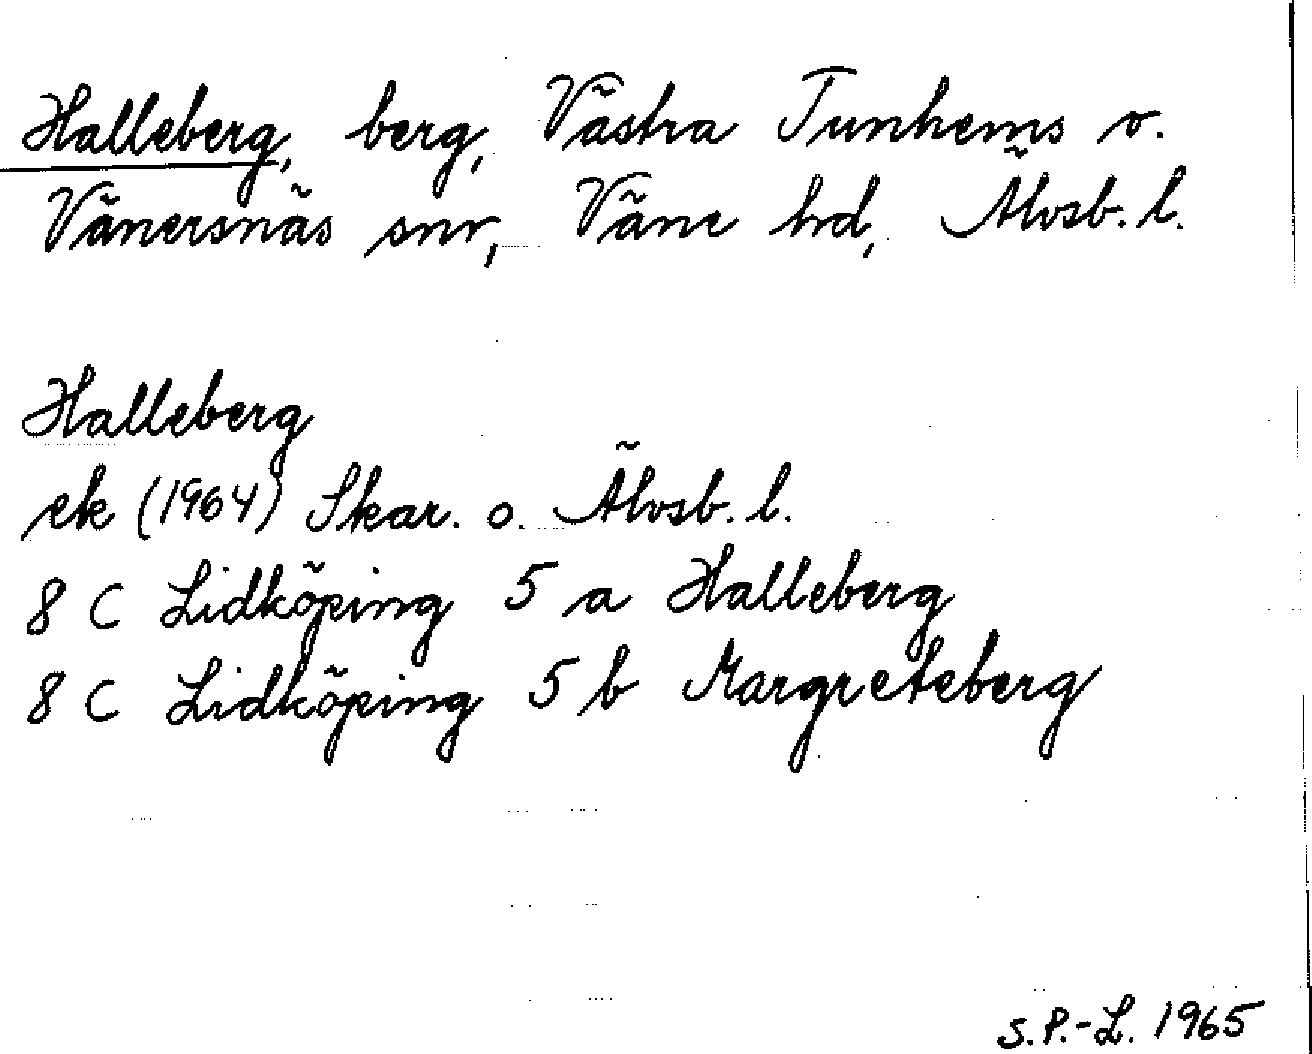 Halleberg, berg, Västra Tunhems o.
Vänersnäs snr, Väne hd, Älvsb. l.
Halleberg
ek (1964) Skar. o. Älvsb. l.
8 C Lidköping 5 a Halleberg
8 C Lidköping 5 b Margreteberg
S.P.-L. 1965